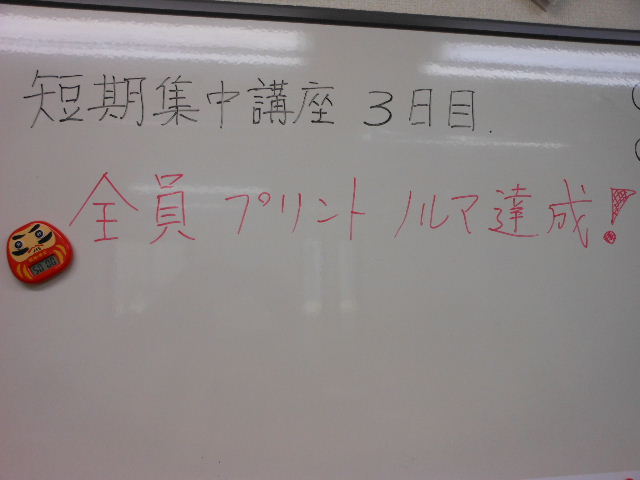 短期集中講座 3日目.
全員 プリント ノルマ達成!
50 00